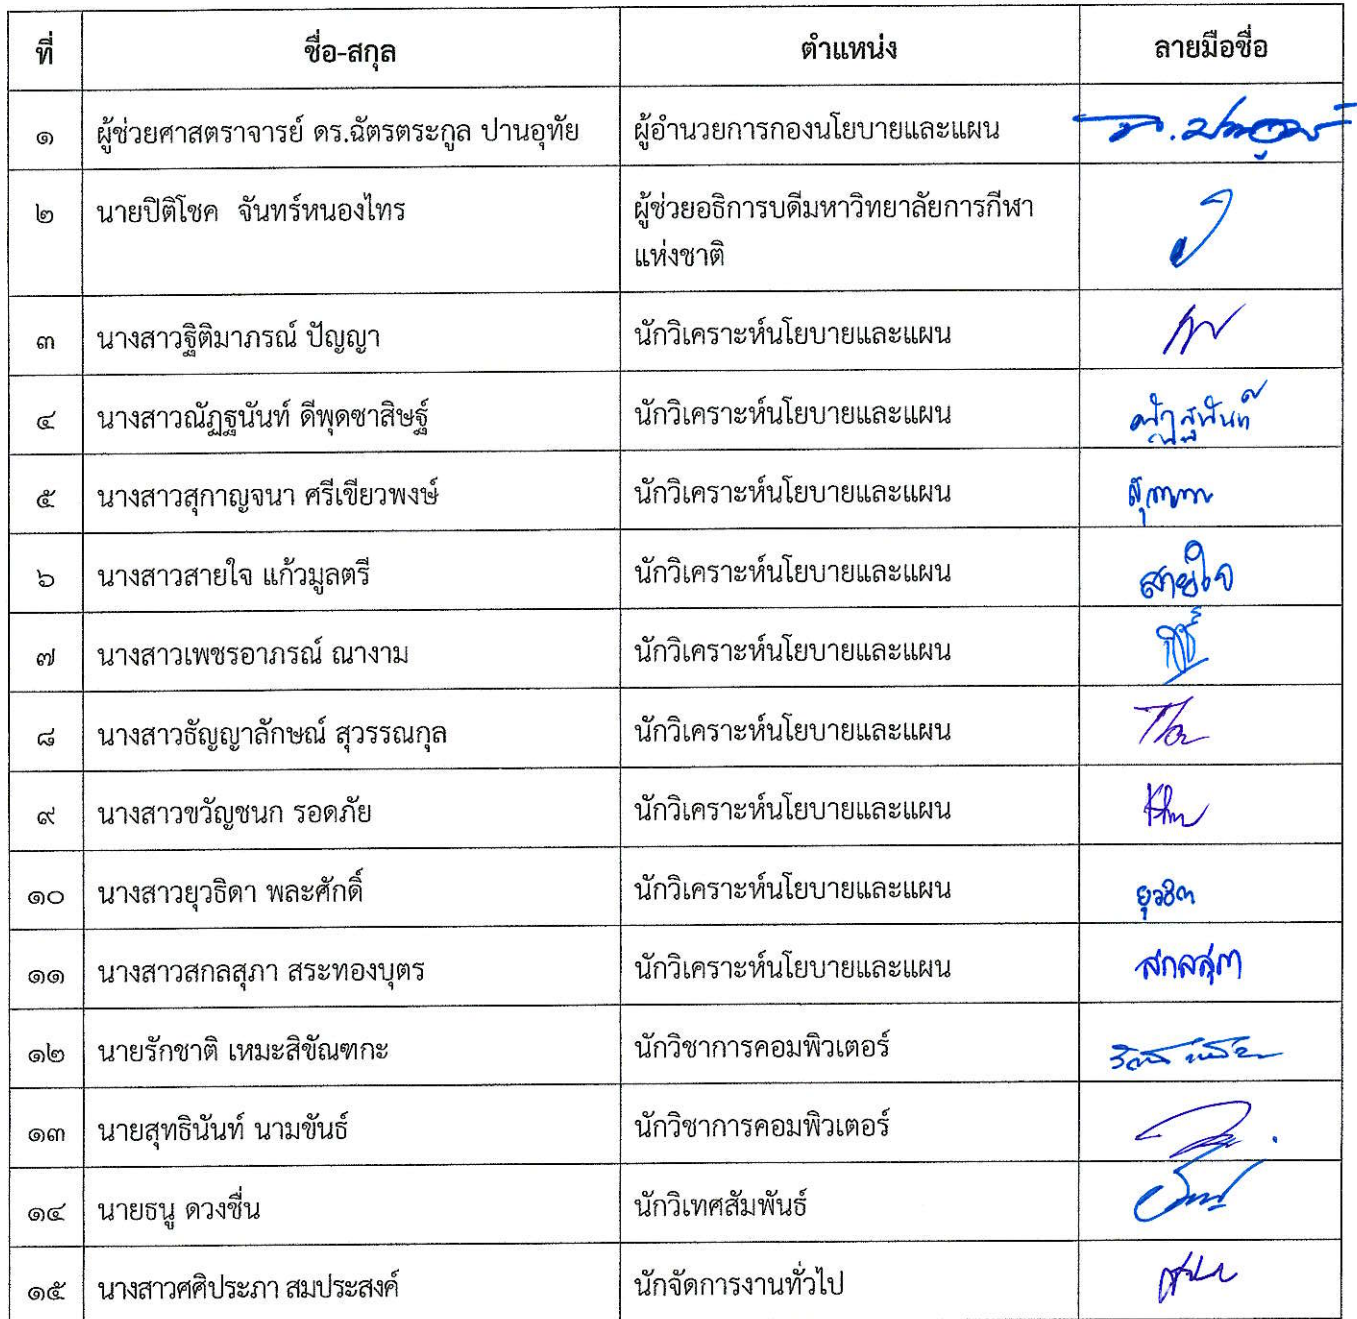 ที่ ชื่อ-สกุล ตำแหน่ง ลายมือชื่อ
๑ ผู้ช่วยศาสตราจารย์ ดร.ฉัตรตระกูล ปานอุทัย ผู้อำนวยการกองนโยบายและแผน
๒ นายปิติโชค จันทร์หนองไทร ผู้ช่วยอธิการบดีมหาวิทยาลัยการกีฬา
แห่งชาติ
๓ นางสาวฐิติมาภรณ์ ปัญญา นักวิเคราะห์นโยบายและแผน
๔ นางสาวณัฏฐนันท์ ดีพุดซาสิษฐ์ นักวิเคราะห์นโยบายและแผน ณัฏฐนันท์
๕ นางสาวสุกาญจนา ศรีเขียวพงษ์ นักวิเคราะห์นโยบายและแผน
๖ นางสาวสายใจ แก้วมูลตรี นักวิเคราะห์นโยบายและแผน สายใจ
๗ นางสาวเพชรอาภรณ์ ณางาม นักวิเคราะห์นโยบายและแผน
๘ นางสาวธัญญาลักษณ์ สุวรรณกุล นักวิเคราะห์นโยบายและแผน
๙ นางสาวขวัญชนก รอดภัย นักวิเคราะห์นโยบายและแผน
๑๐ นางสาวยุวธิดา พละศักดิ์ นักวิเคราะห์นโยบายและแผน ยุวธิดา
๑๑ นางสาวสกลสุภา สระทองบุตร นักวิเคราะห์นโยบายและแผน สกลสุภา
๑๒ นายรักชาติ เหมะสิขัณฑกะ นักวิชาการคอมพิวเตอร์
๑๓ นายสุทธินันท์ นามขันธ์ นักวิชาการคอมพิวเตอร์
๑๔ นายธนู ดวงชื่น นักวิเทศสัมพันธ์
๑๕ นางสาวศศิประภา สมประสงค์ นักจัดการงานทั่วไป